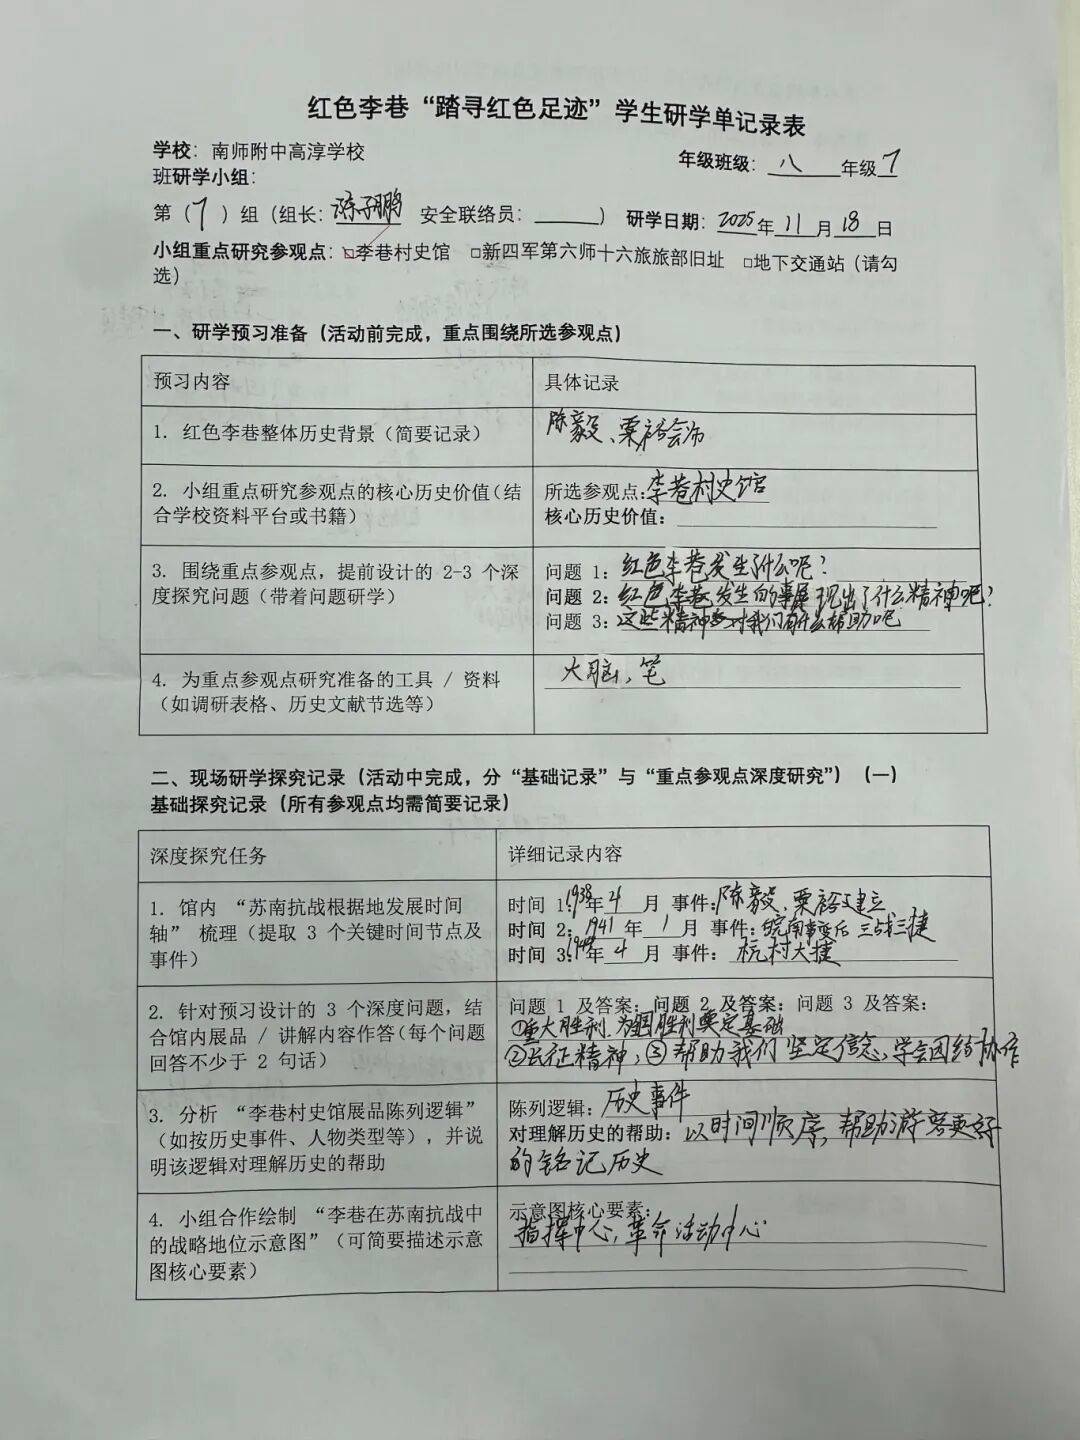 红色李巷“踏寻红色足迹”学生研学单记录表
学校：南师附中高淳学校
年级班级：八年级7
班研学小组：
第（7）组（组长：陈子鹏 安全联络员：______） 研学日期：2025年11月18日
小组重点研究参观点：☑李巷村史馆 □新四军第六师十六旅旅部旧址 □地下交通站（请勾
选）
一、研学预习准备（活动前完成，重点围绕所选参观点）
预习内容
具体记录
1. 红色李巷整体历史背景（简要记录）
陈毅、粟裕会师
2. 小组重点研究参观点的核心历史价值（结
合学校资料平台或书籍）
所选参观点：李巷村史馆
核心历史价值：
3. 围绕重点参观点，提前设计的 2-3 个深
度探究问题（带着问题研学）
问题 1：红色李巷发生了什么呢？
问题 2：红色李巷发生的事展现出了什么精神呢？
问题 3：这些精神对我们有什么帮助呢
4. 为重点参观点研究准备的工具 / 资料
（如调研表格、历史文献节选等）
大脑，笔
二、现场研学探究记录（活动中完成，分“基础记录”与“重点参观点深度研究”）（一）
基础探究记录（所有参观点均需简要记录）
深度探究任务
详细记录内容
1. 馆内 “苏南抗战根据地发展时间
轴” 梳理（提取 3 个关键时间节点及
事件）
时间 1：1938年4月 事件：陈毅、粟裕建立
时间 2：1941年1月 事件：皖南事变后 三战三捷
时间 3：年4月 事件：杭村大捷
2. 针对预习设计的 3 个深度问题，结
合馆内展品 / 讲解内容作答（每个问题
回答不少于 2 句话）
问题 1 及答案：问题 2 及答案：问题 3 及答案：
①重大胜利，为胜利奠定基础
②长征精神，③帮助我们坚定信念，学会团结协作
3. 分析 “李巷村史馆展品陈列逻辑”
（如按历史事件、人物类型等），并说
明该逻辑对理解历史的帮助
陈列逻辑：历史事件
对理解历史的帮助：以时间顺序，帮助游客更好
的铭记历史
4. 小组合作绘制 “李巷在苏南抗战中
的战略地位示意图”（可简要描述示意
图核心要素）
示意图核心要素：
指挥中心，革命活动中心